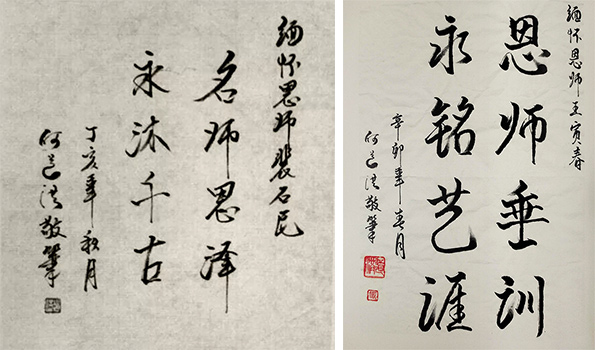 缅怀恩师裴石民
名师恩泽
永沐千古
丁亥年秋月
何道洪敬筆
缅怀恩师王寅春
恩师垂训
永铭艺涯
辛卯年春月
何道洪敬筆